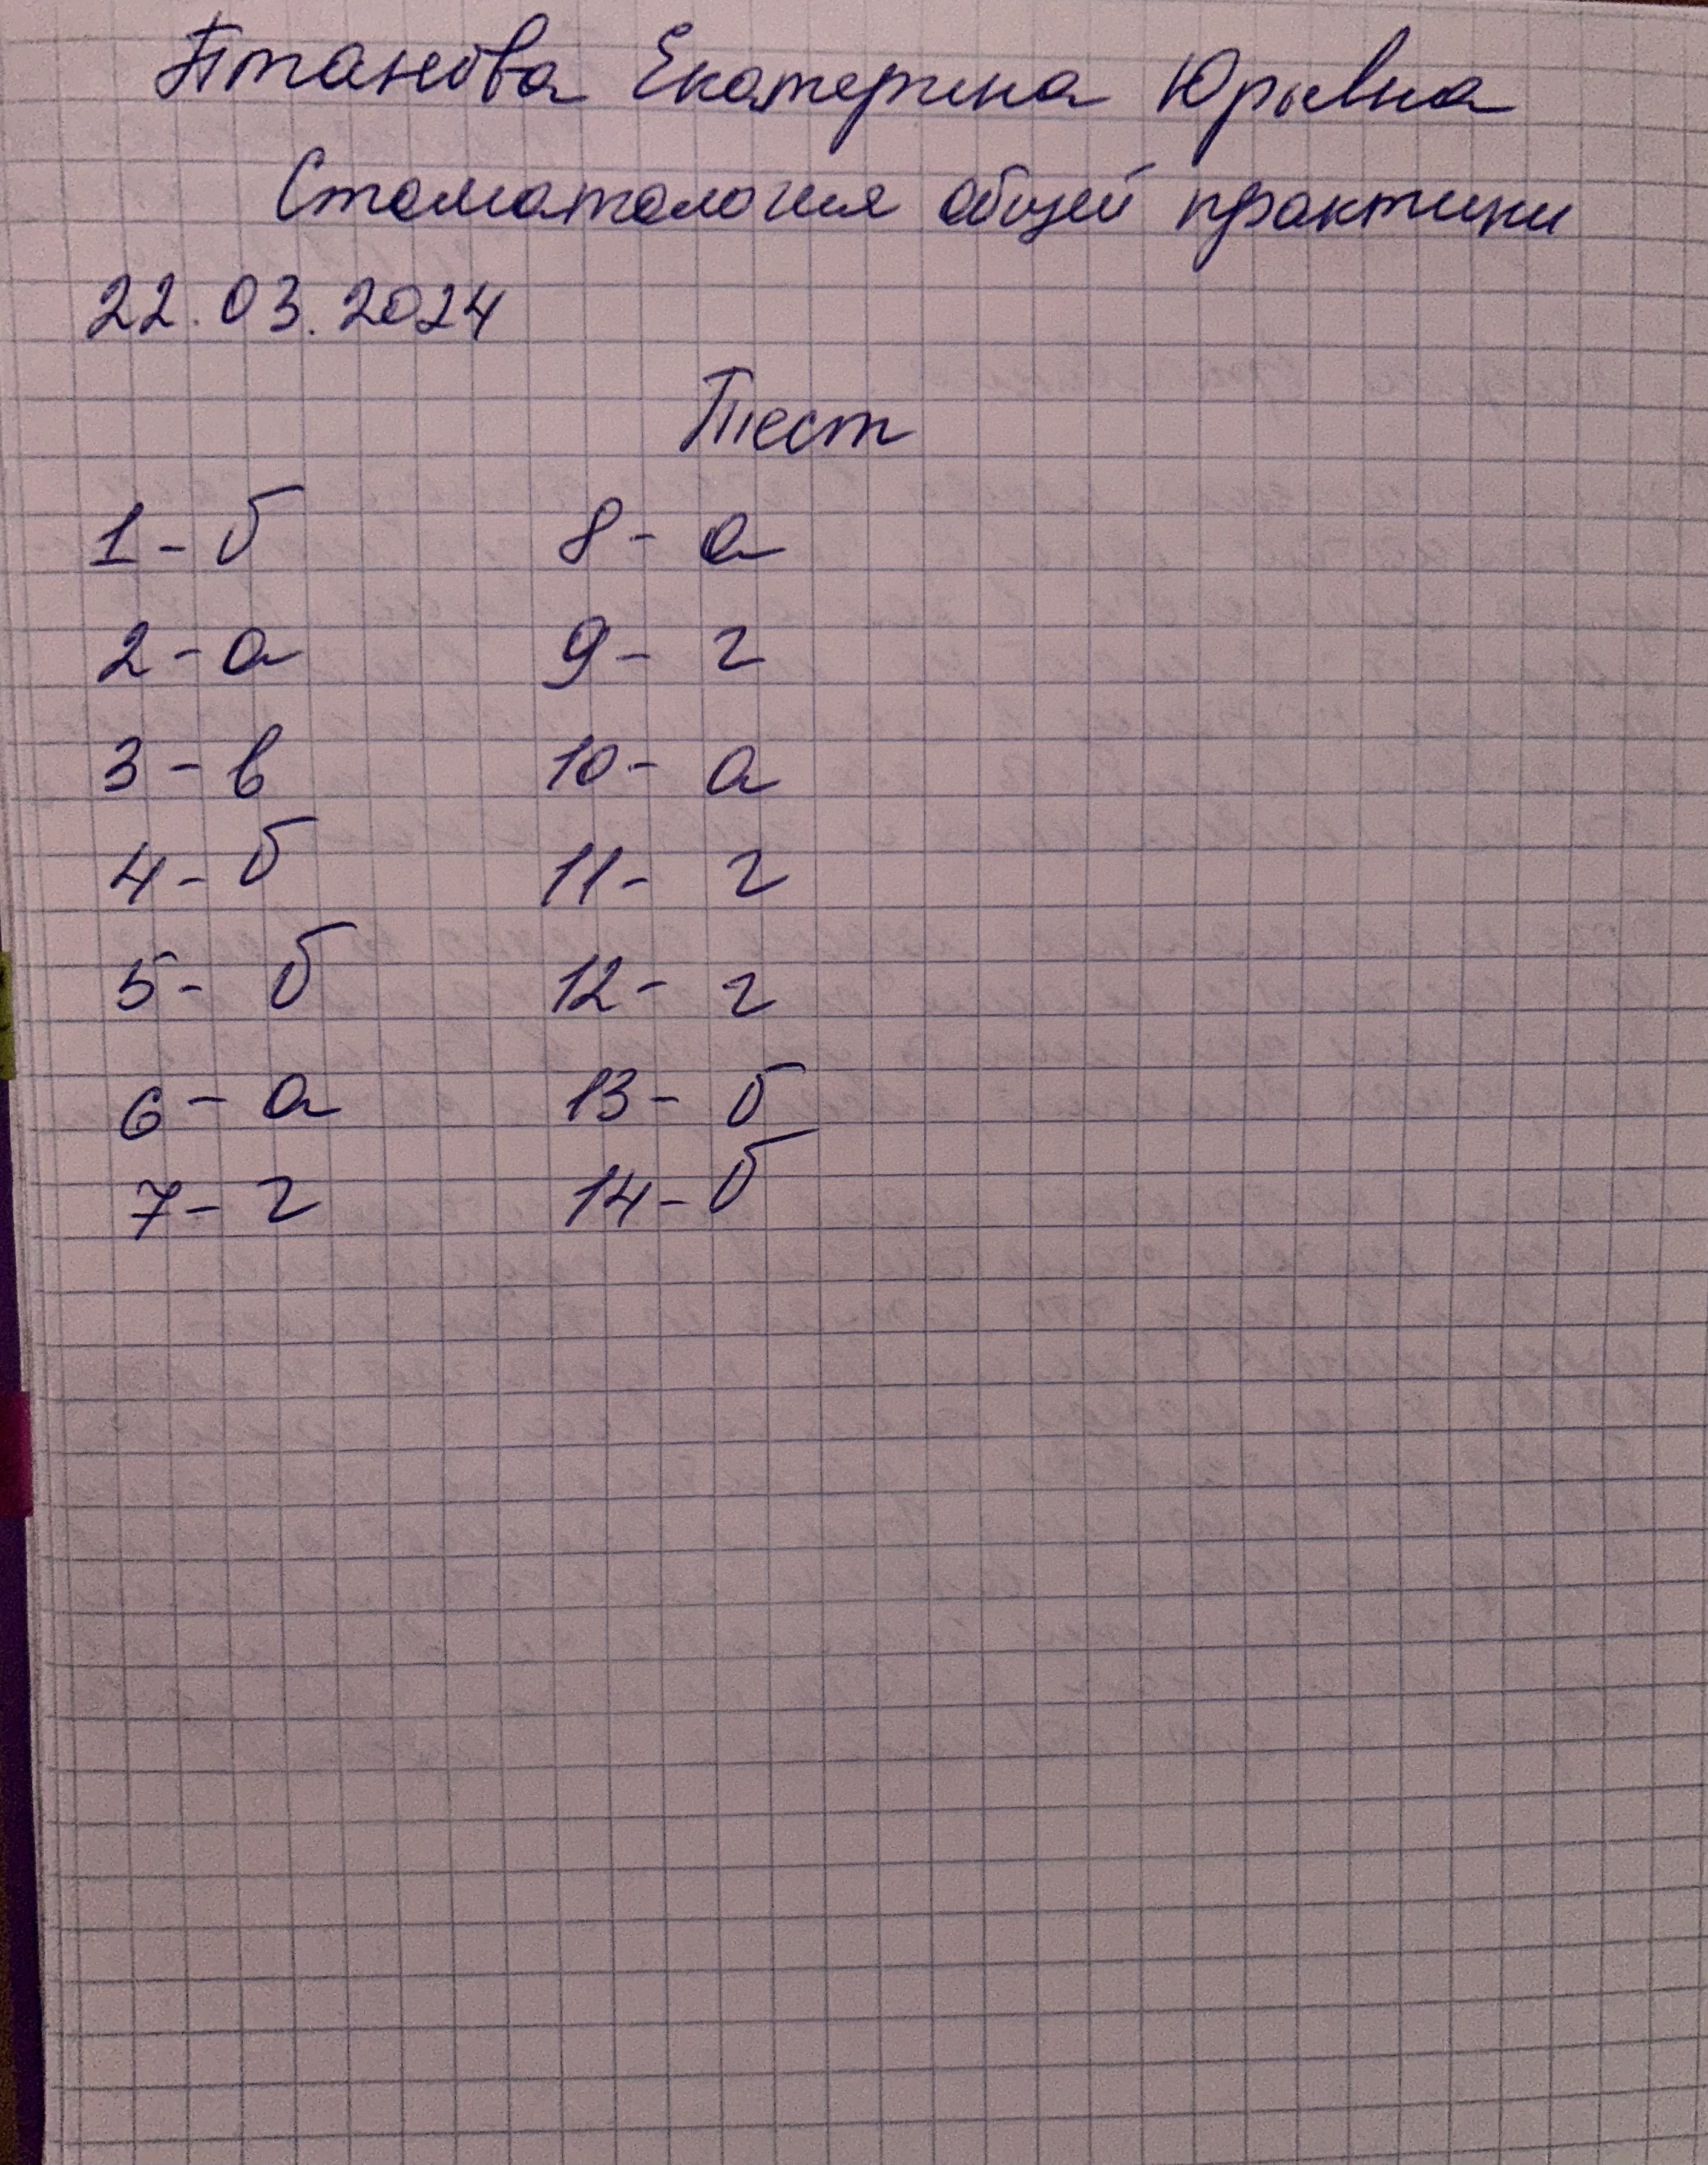 Птанова Екатерина Юрьевна
Стоматология общей практики
22.03.2024
Тест
1 - б 8 - а
2 - а 9 - г
3 - в 10 - а
4 - б 11 - г
5 - б 12 - г
6 - а 13 - б
7 - г 14 - б